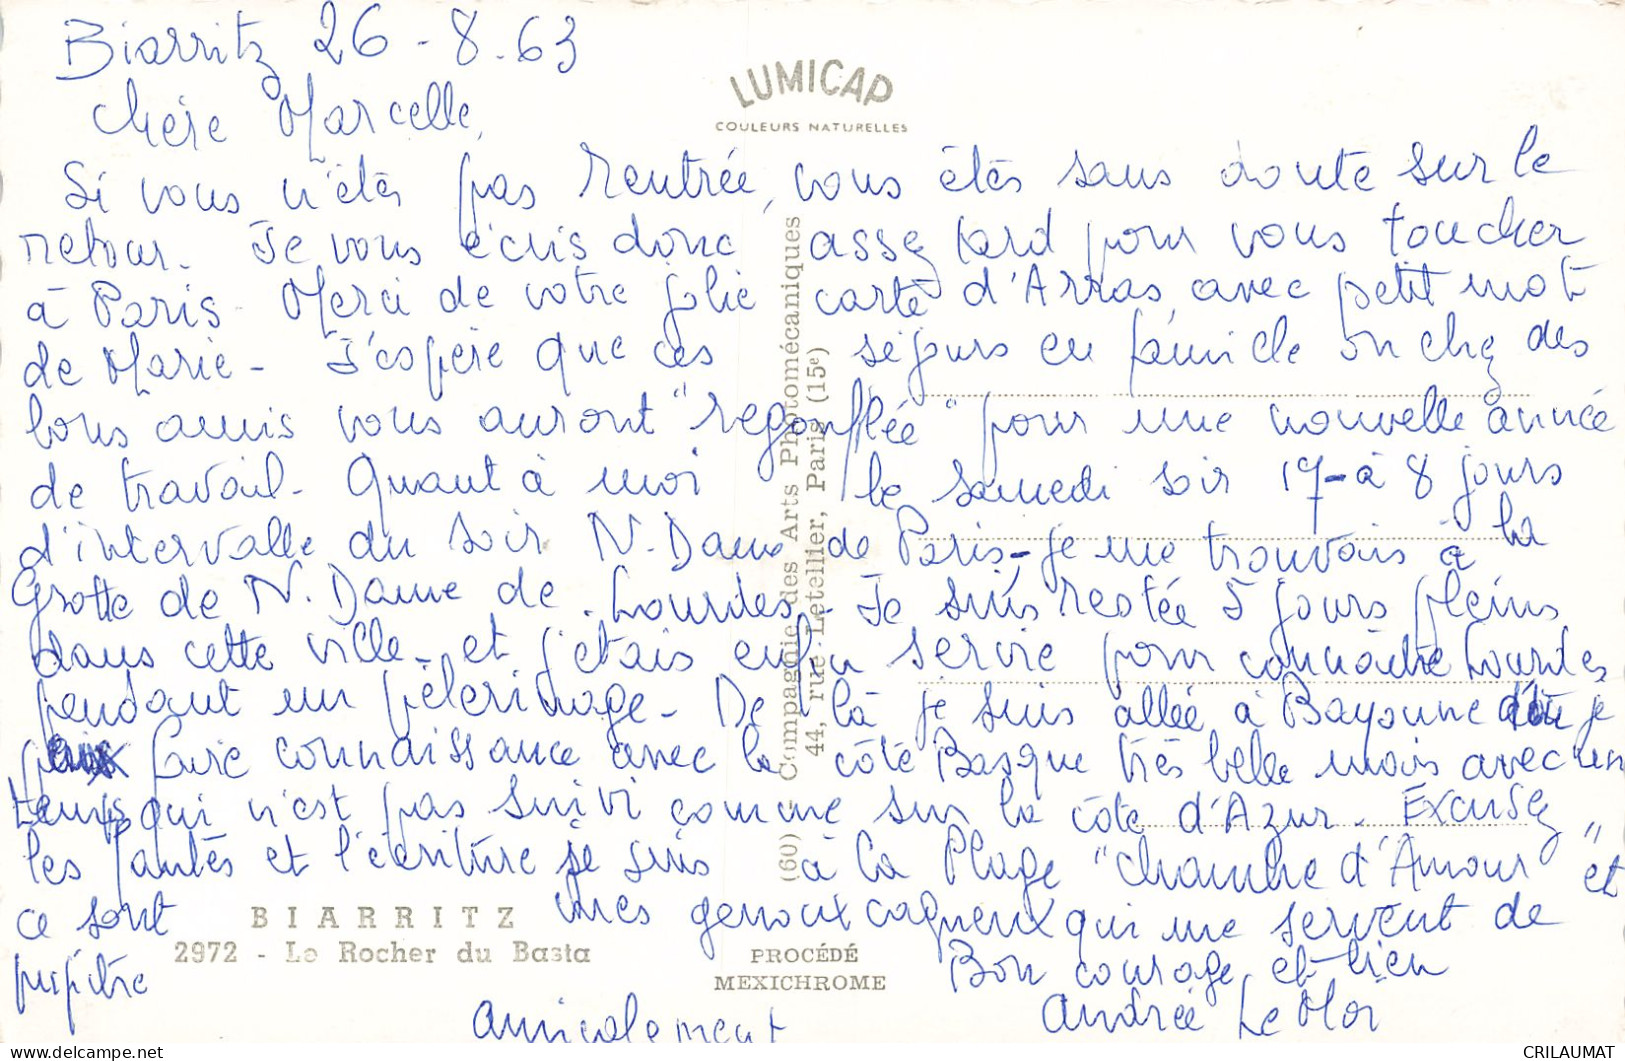 Biarritz 26-8.63
Chère Marcelle,
Si vous n'êtes pas rentrée, vous êtes sans doute sur le
retour. Je vous écris donc assez tard pour vous toucher
à Paris. Merci de votre jolie carte d'Arras, avec petit mot
de Marie - J'espère que ces séjours en famille ou chez des
bons amis vous auront "regonflée" pour une nouvelle année
de travail. Quant à moi le samedi soir 17 - à 8 jours
d'intervalle du soir N. Dame de Paris - je me trouvais à la
Grotte de N. Dame de Lourdes - Je suis restée 5 jours pleins
dans cette ville - et j'étais enfin servie pour connaître Lourdes
pendant un pèlerinage - De là je suis allée à Bayonne d'où je
faire connaissance avec la côte Basque très belle mais avec un
temps qui n'est pas suivi comme sur la côte d'Azur. Excusez
les fautes et l'écriture je suis à la Plage "chambre d'Amour" et
ce sont mes genoux cagneux qui me servent de
pupitre Bon courage et bien
amicalement Andrée Le Mor
LUMICAP
COULEURS NATURELLES
(60) Compagnie des Arts Photomécaniques
44, rue Letellier, Paris (15e)
BIARRITZ
2972 - Le Rocher du Basta
PROCÉDÉ
MEXICHROME
CRILAUMAT